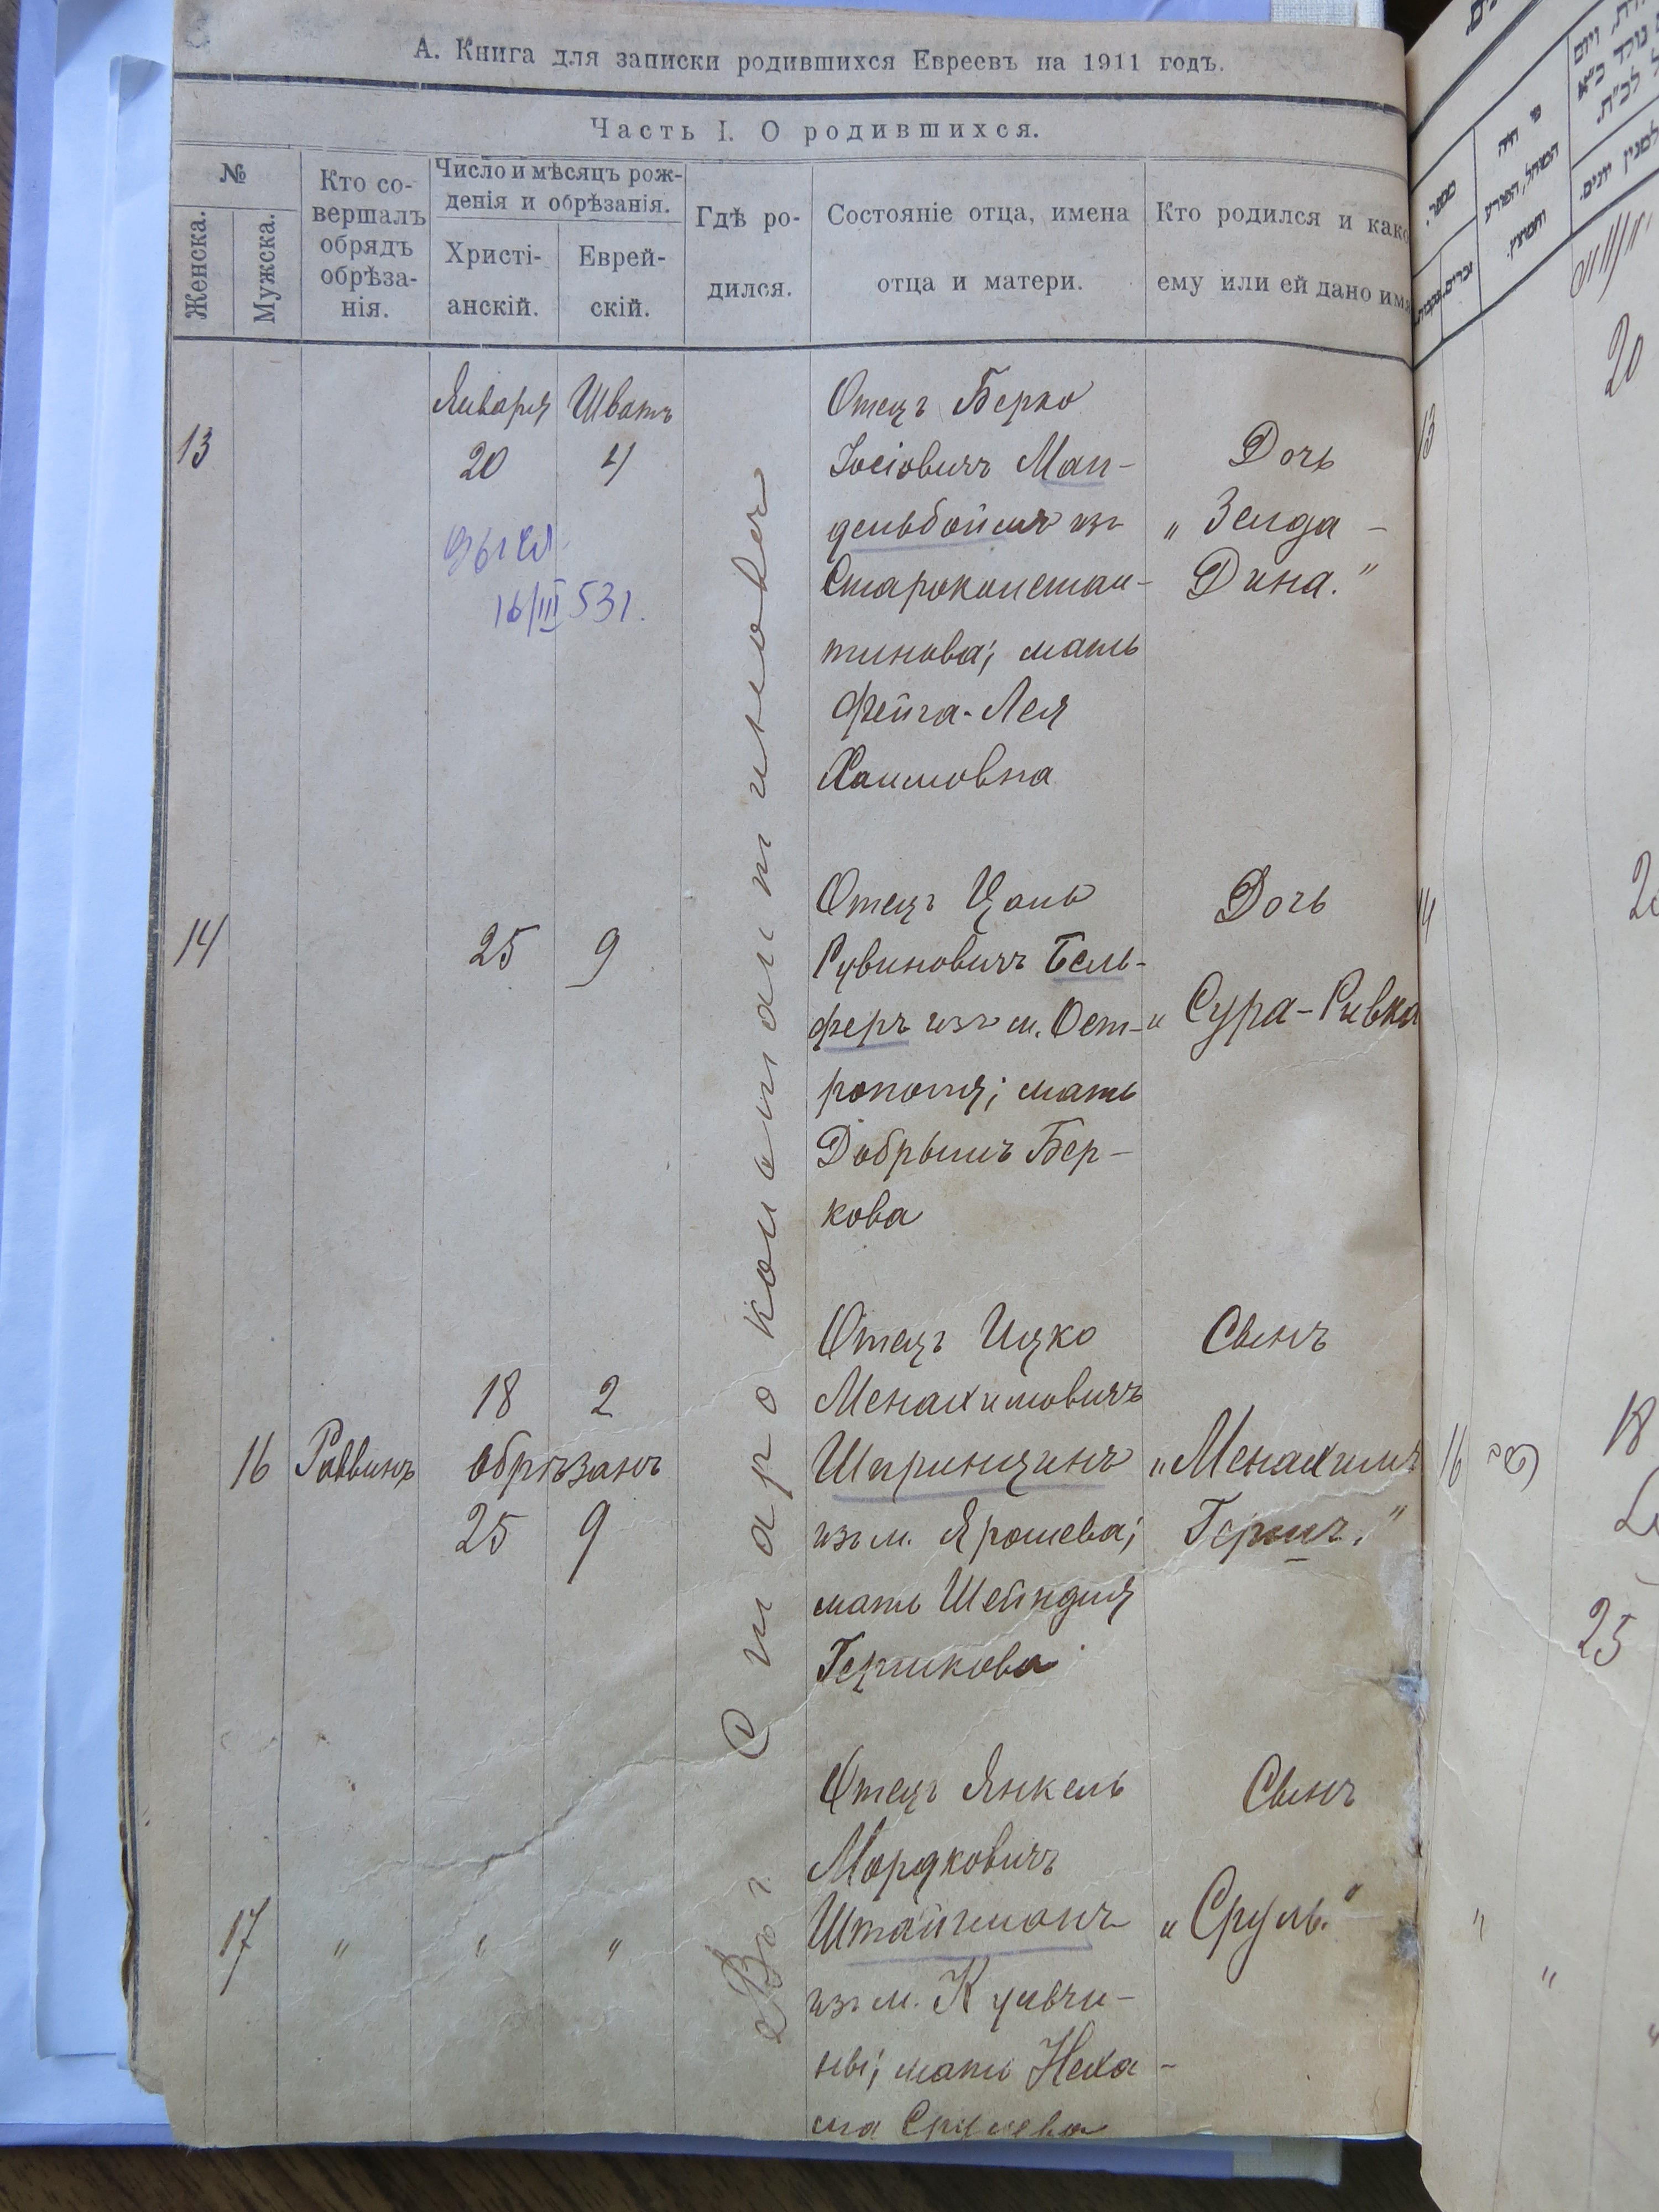 А. Книга для записки родившихся Евреевъ на 1911 годъ.
Часть I. О родившихся.
№
Женска.
Мужска.
Кто со-
вершалъ
обрядъ
обрѣза-
нія.
Число и мѣсяцъ рож-
денія и обрѣзанія.
Христі-
анскій.
Еврей-
скій.
Гдѣ ро-
дился.
Состояніе отца, имена
отца и матери.
Кто родился и како
ему или ей дано имя
Въ г. Староконстантиновѣ
13
Января Шватъ
20 4
16/III 531.
Отецъ Берко
Іосіовичъ Ман-
дельбоймъ изъ
Староконстан-
тинова; мать
Фейга-Лея
Хаимовна
Дочь
„Зелда-
Дина."
14
25 9
Отецъ Цаль
Рувиновичъ Бель-
феръ изъ м. Ост-
рополя; мать
Добрышъ Бер-
кова
Дочь
„Сура-Ривка
16 Раввинъ
18 2
обрѣзанъ
25 9
Отецъ Ицко
Менахимовичъ
Шпринцинъ
изъ м. Ярошева;
мать Шейндля
Гершкова
Сынъ
„Менахимъ
Гершъ."
17 " " "
Отецъ Янкель
Мордковичъ
Штайгманъ
изъ м. Кульчи-
ны; мать Неха-
ма Срулева
Сынъ
„Сруль."
מספר
זכרים
נקבות
13
14
16
20
18
25